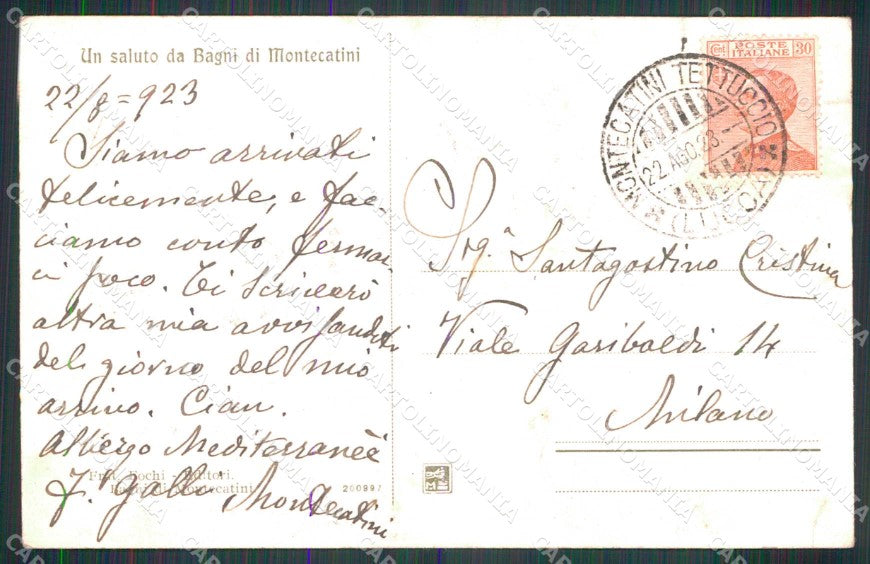 Un saluto da Bagni di Montecatini
22/8=923
Siamo arrivati
felicemente, e fac-
ciamo conto fermar-
ci poco. Ti scriverò
altra mia avvisandoti
del giorno del mio
arrivo. Ciau.
Albergo Mediterraneè
Montecatini
Frat. Fochi - Editori.
Bagni di Montecatini
Cent. POSTE ITALIANE 30
MONTECATINI TETTUCCIO
22 AGO.23
(LUCCA)
Sig.ª Santagostino Cristina
Viale Garibaldi 14
Milano
CARTOLINOMANIA